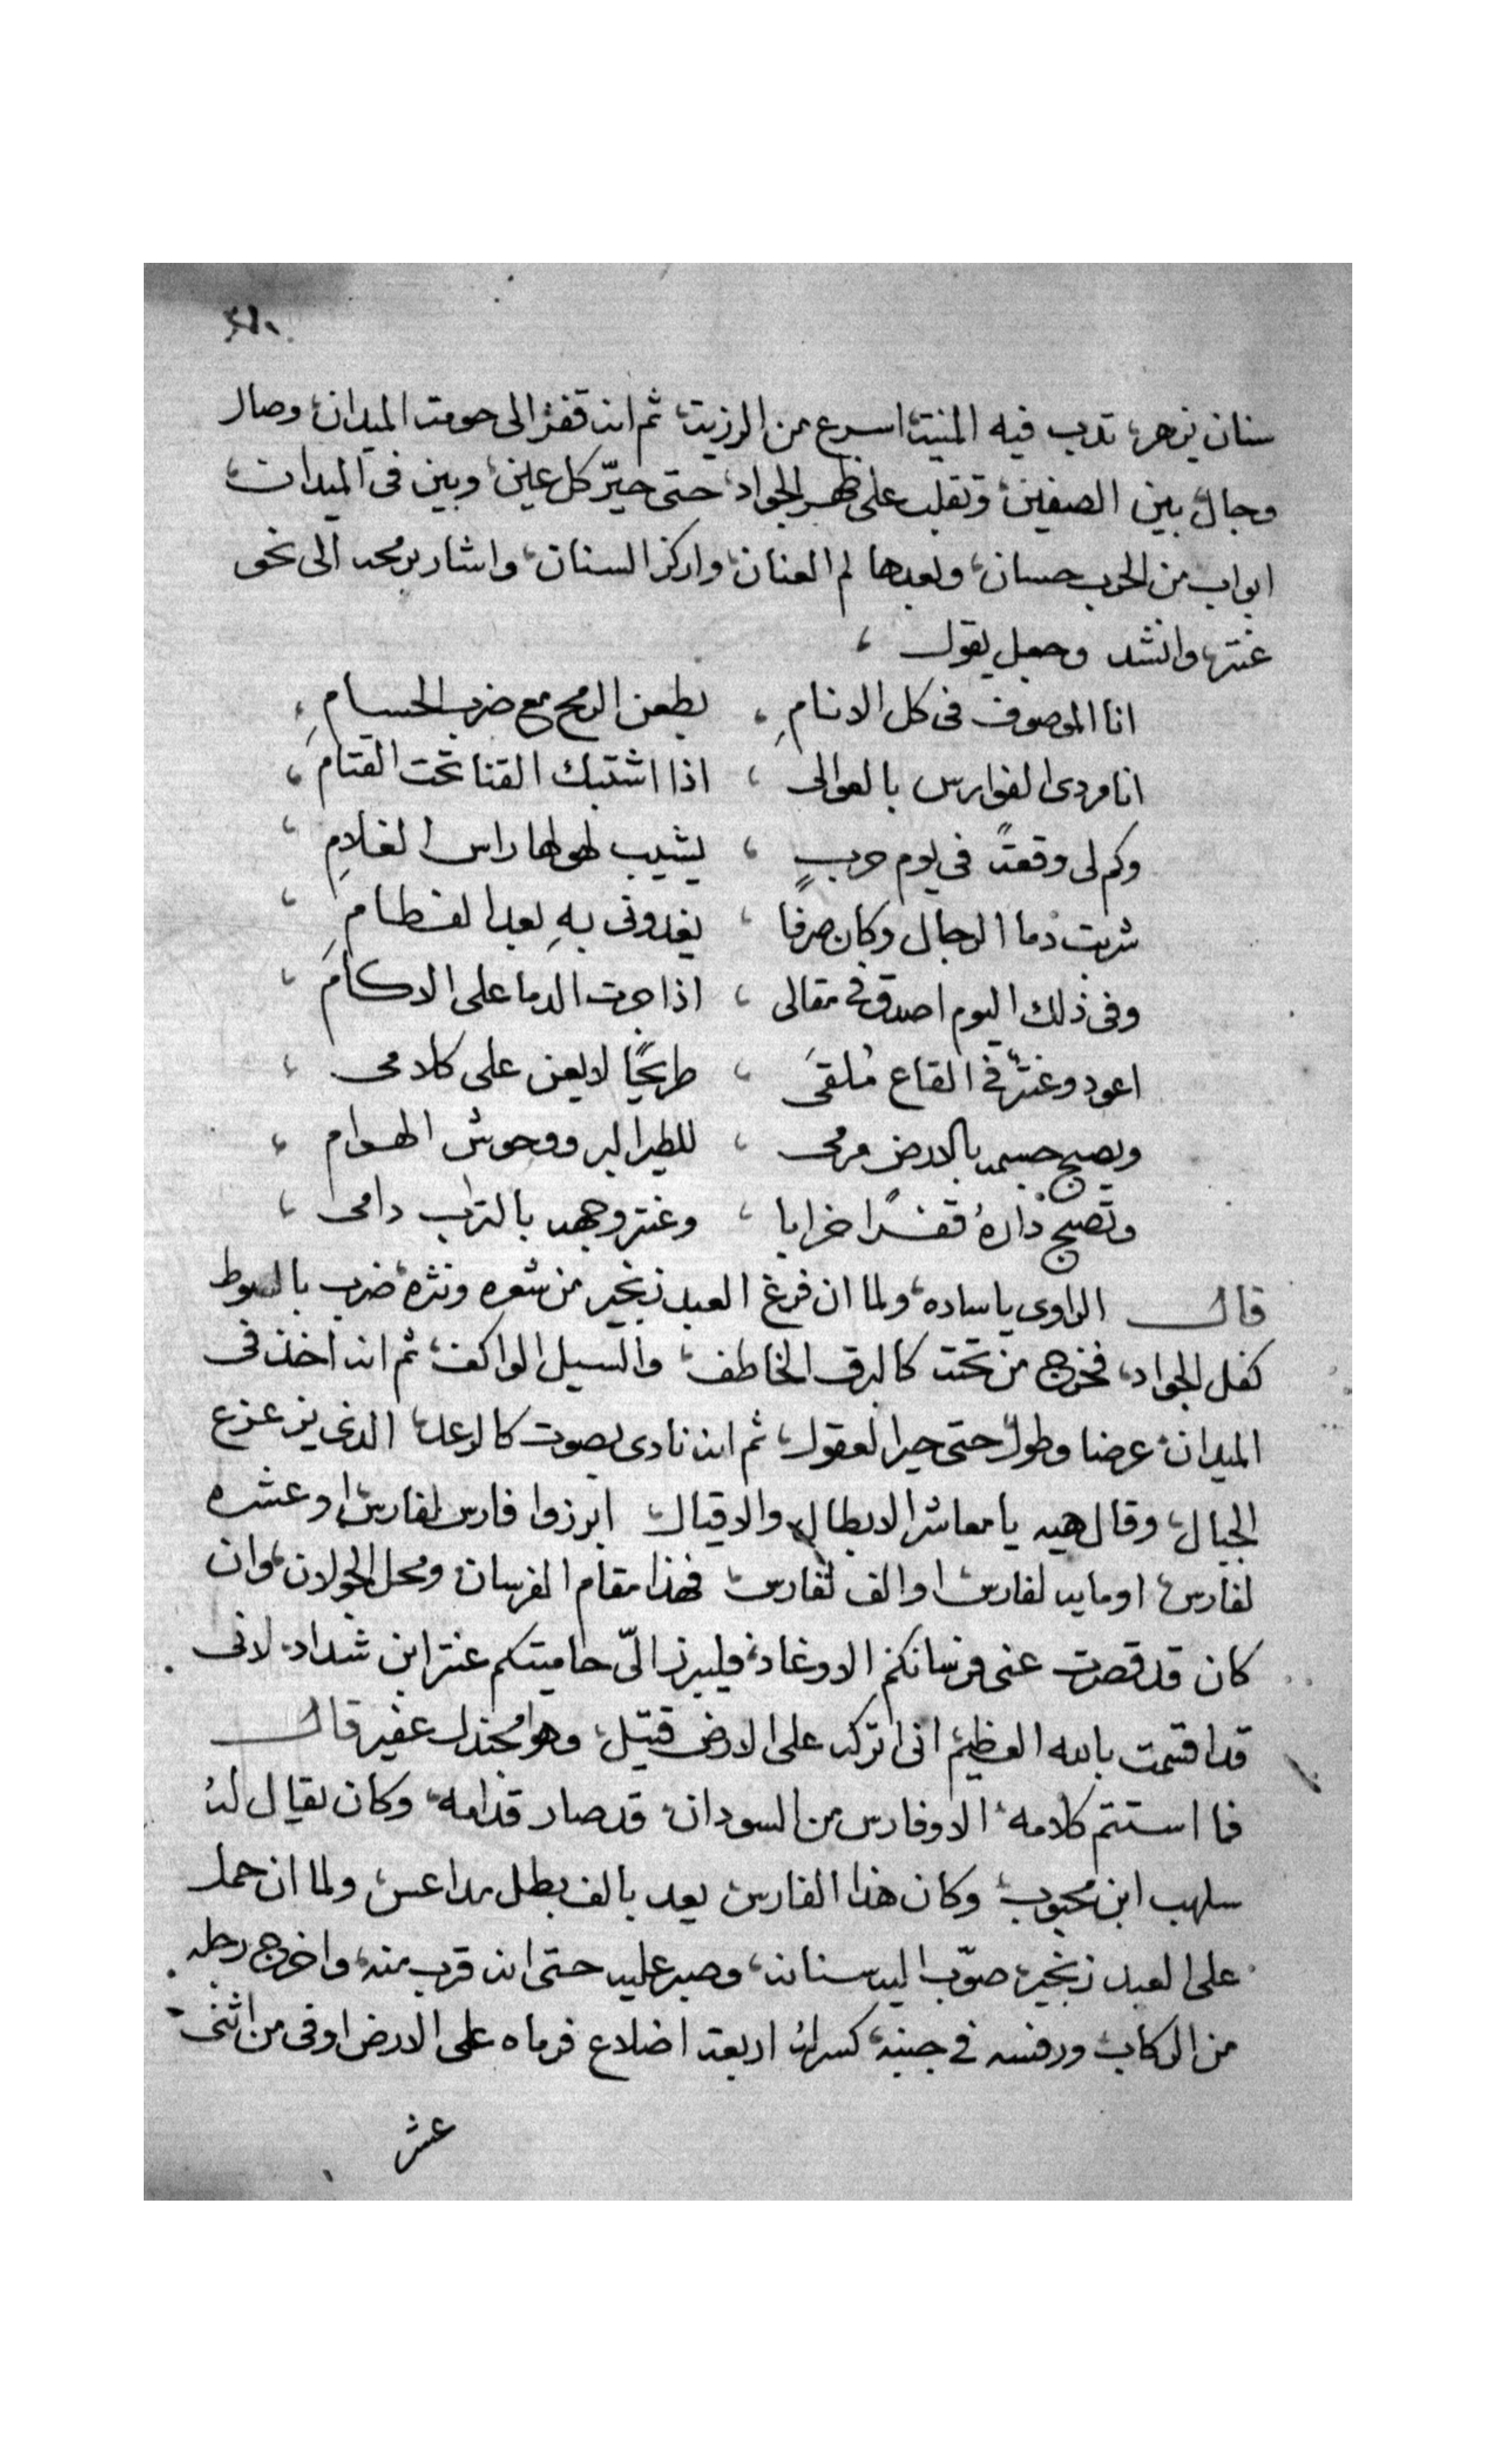 سنان يزهر، تدب فيه المنية، اسرع من الرزية، ثم انه قفز الى حومة الميدان، وصال
وجال، بين الصفين، وتقلب على ظهر الجواد، حتى حيّر كل عين، وبين فى الميدان،
ابواب من الحرب حسان، وبعدها لم العنان، واركز السنان، واشار برمحه الى نحو
عنتر، وانشد وجعل يقول ،
انا الموصوف فى كل الانامِ ، بطعن الرمح مع ضرب الحسامِ ،
انا مردى الفوارس بالعوالى ، اذا اشتبك القنا تحت القتام ،
وكم لى وقعةً فى يوم حربٍ ، يشيب لهولها راس الغلامِ ،
شربت دما الرجال وكان صرفا ، يغدونى بهِ بعد الفطامِ ،
وفى ذلك اليوم اصدق فى مقالى ، اذا جرت الدما على الاكام ،
اعود وعنترٌ فى القاع مُلقىَ ، طريحًا لا يعى على كلامى ،
ويصبح جسمه بالارض مرمى ، للطير البر ووحوش الهوام ،
وتصبح دارهُ قفرًا خرابا ، وعنتر وجهه بالتراب دامى ،
قال الراوى ياساده، ولما ان فرغ العبد زنجير من شعره ونثره، ضرب بالسوط
كفل الجواد، فخرج من تحته كالبرق الخاطف، والسيل الواكف، ثم انه اخذ فى
الميدان، عرضا وطول، حتى حير العقول، ثم انه نادى بصوت كالرعد، الذى يزعزع
الجبال، وقال هيه يا معاشر الابطال، والاقيال، ابرزوا فارس لفارس، او عشره
لفارس، او مايه لفارس، او الف لفارس، فهذا مقام الفرسان، ومحل الجولان، وان
كان قد قصرت عنى فرسانكم الاوغاد، فليبرز الىّ حاميتكم عنتر ابن شداد، لانى
قد اقسمت بالله العظيم، انى اتركه على الارض قتيل، وهو مجندل عفير قال
فما استتم كلامه، الا وفارس من السودان، قد صار قدامه، وكان يقال لهُ
سلهب ابن محبوب، وكان هذا الفارس، يعد بالف بطل مداعس، ولما ان حمل
على العبد زنجير، صوّب اليه سنانه، وصبر عليه حتى انه قرب منه، واخرج رجله
من الركاب، ورفسه فى جنبه، كسر لهُ اربعة اضلاع فرماه على الارض اوفى من اثنى
عشر